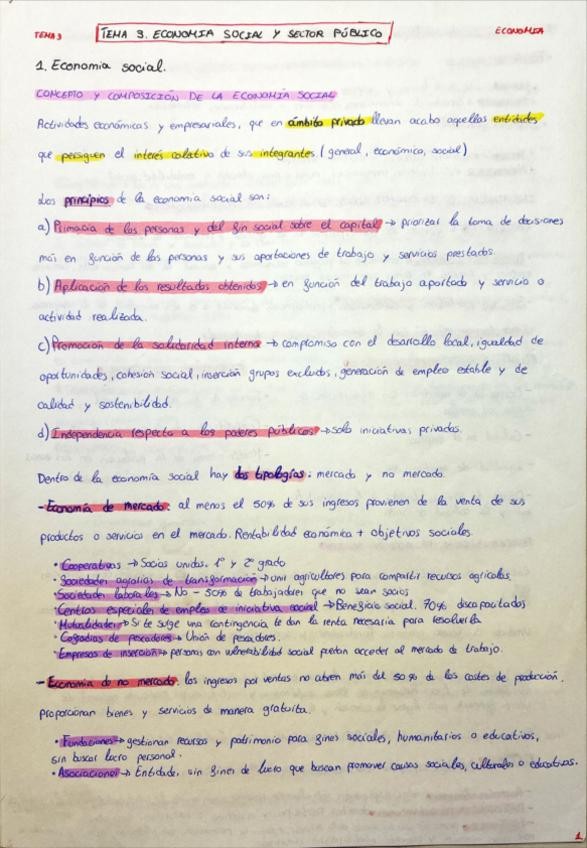 TEMA 3
TEMA 3. ECONOMIA SOCIAL Y SECTOR PÚBLICO
ECONOMIA
1. Economia social.
CONCEPTO Y COMPOSICIÓN DE LA ECONOMIA SOCIAL
Actividades económicas y empresariales, que en ámbito privado llevan acabo aquellas entidades
que persiguen el interés colativo de sus integrantes. (general, económico, social)
Los principios de la economia social son:
a) Primacia de las personas y del fin social sobre el capital → priorizar la toma de decisiones
más en función de las personas y sus aportaciones de trabajo y servicios prestados.
b) Aplicación de los resultados obtenidos → en función del trabajo aportado y servicio o
actividad realizada.
c) Promoción de la solidaridad interna → compromiso con el desarrollo local, igualdad de
oportunidades, cohesión social, inserción grupos excluidos, generación de empleo estable y de
calidad y sostenibilidad.
d) Independencia respecto a los poderes públicos → solo iniciativas privadas.
Dentro de la economia social hay dos tipologías: mercado y no mercado.
- Economia de mercado: al menos el 50% de sus ingresos provienen de la venta de sus
productos o servicios en el mercado. Rentabilidad económica + objetivos sociales.
• Cooperativas → Socios unidos. 1º y 2º grado
• Sociedades agrarias de transformación → unir agricultores para compartir recursos agrícolas.
• Sociedades laborales → No - 50% de trabajadores que no sean socios
• Centros especiales de empleo de iniciativa social → Beneficio social. 70% discapacitados
• Mutualidades → Si te surge una contingencia te dan la renta necesaria para resolverla
• Cofradías de pescadores → Unión de pescadores.
• Empresas de inserción → personas con vulnerabilidad social puedan acceder al mercado de trabajo.
- Economia de no mercado: los ingresos por ventas no cubren más del 50% de los costes de producción.
Proporcionan bienes y servicios de manera gratuita.
• Fundaciones → gestionan recursos y patrimonio para fines sociales, humanitarios o educativos,
sin buscar lucro personal.
• Asociaciones → Entidades sin fines de lucro que buscan promover causas sociales, culturales o educativas.
1